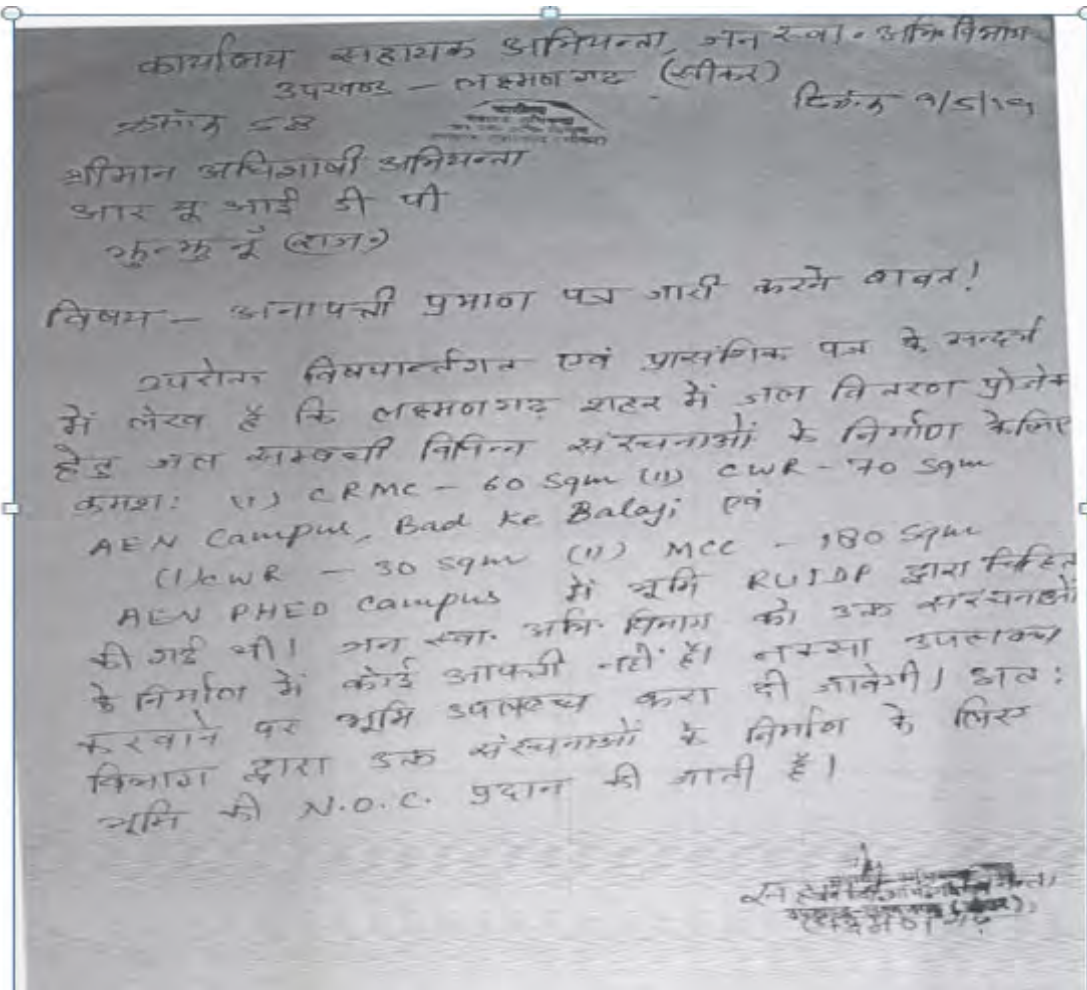 कार्यालय सहायक अभियन्ता, जन स्वा. अभि विभाग
उपखण्ड - लक्ष्मणगढ (सीकर)
क्रमांक 58 दिनांक 9/5/19
श्रीमान अधिशाषी अभियन्ता
आर यू आई डी पी
झुन्झुनूँ (राज.)
विषय - अनापत्ती प्रमाण पत्र जारी करने बाबत!
उपरोक्त विषयान्तर्गत एवं प्रासंगिक पत्र के सन्दर्भ
में लेख है कि लक्ष्मणगढ़ शहर में जल वितरण प्रोजेक
हेतु जल सम्बन्धी विभिन्न संरचनाओं के निर्माण के लिए
क्रमश: (i) CRMC - 60 Sqm (ii) CWR - 70 Sqm
AEN Campus, Bad Ke Balaji एवं
(i) CWR - 30 Sqm (ii) MCC - 180 Sqm
AEN PHED Campus में भूमि RUIDP द्वारा चिन्हित
की गई थी। जन स्वा. अभि. विभाग को उक्त संरचनाओं
के निर्माण में कोई आपत्ती नहीं है। नक्सा उपलब्ध
करवाने पर भूमि उपलब्ध करा दी जावेगी। अत:
विभाग द्वारा उक्त संरचनाओं के निर्माण के लिए
भूमि की N.O.C. प्रदान की जाती है।
लक्ष्मणगढ़